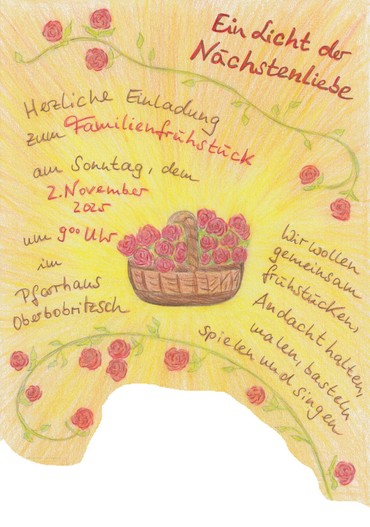 Ein Licht der
Nächstenliebe
Herzliche Einladung
zum Familienfrühstück
am Sonntag, dem
2. November
2025
um 9⁰⁰ Uhr
im
Pfarrhaus
Oberbobritzsch
Wir wollen
gemeinsam
frühstücken,
Andacht halten,
malen, basteln
spielen und singen